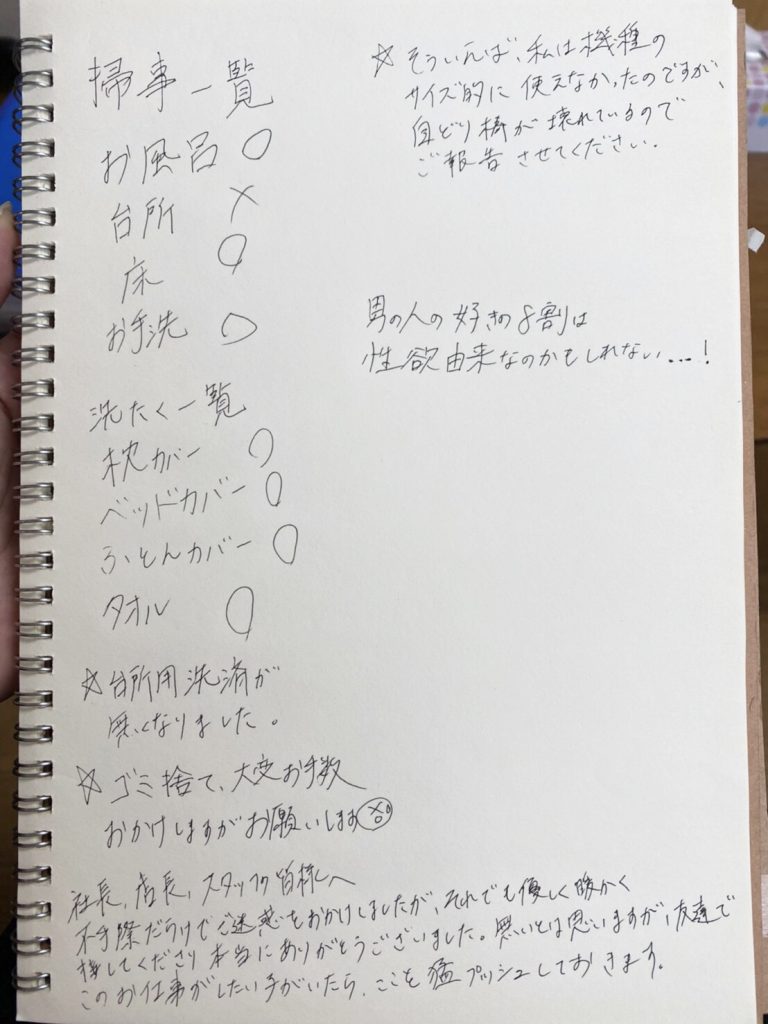 掃事一覧
お風呂 ○
台所 ×
床 ○
お手洗 ○
洗たく一覧
枕カバー ○
ベッドカバー ○
ふとんカバー ○
タオル ○
☆台所用洗済が
無くなりました。
☆ゴミ捨て、大変お手数
おかけしますがお願いします
社長、店長、スタッフの皆様へ
不手際だらけでご迷惑をおかけしましたが、それでも優しく暖かく
接してくださり本当にありがとうございました。無いとは思いますが、友達で
このお仕事がしたい子がいたら、ここを猛プッシュしておきます。
☆そういえば、私は機種の
サイズ的に使えなかったのですが、
自どり棒が壊れているので
ご報告させてください.
男の人の好きの8割は
性欲由来なのかもしれない…!